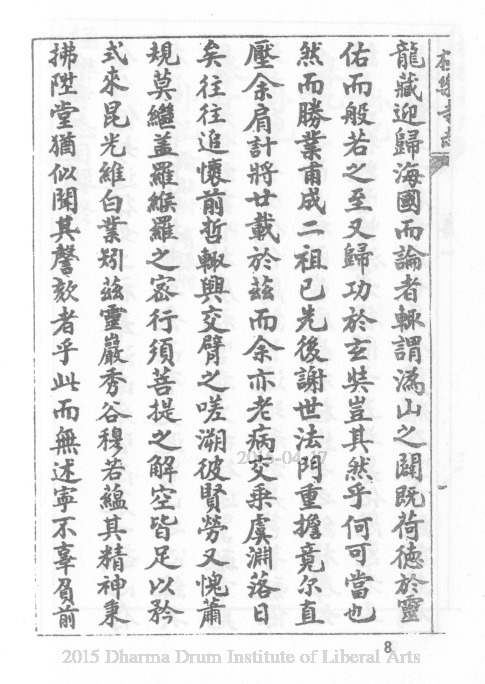 極樂寺志
龍藏迎歸海國而論者輙謂溈山之闢既荷德於靈
佑而般若之至又歸功於玄奘豈其然乎何可當也
然而勝業甫成二祖已先後謝世法門重擔竟尔直
壓余肩計將廿載於茲而余亦老病交乗虞淵落日
矣往往追懷前哲輙興交臂之嗟溯彼賢勞又愧蕭
規莫繼盖羅睺羅之密行須菩提之解空皆足以矜
式來昆光維白業矧茲靈巖秀谷穆若蘊其精神秉
拂陞堂猶似聞其謦欬者乎此而無述寧不辜負前
2015-04-17
8
2015 Dharma Drum Institute of Liberal Arts